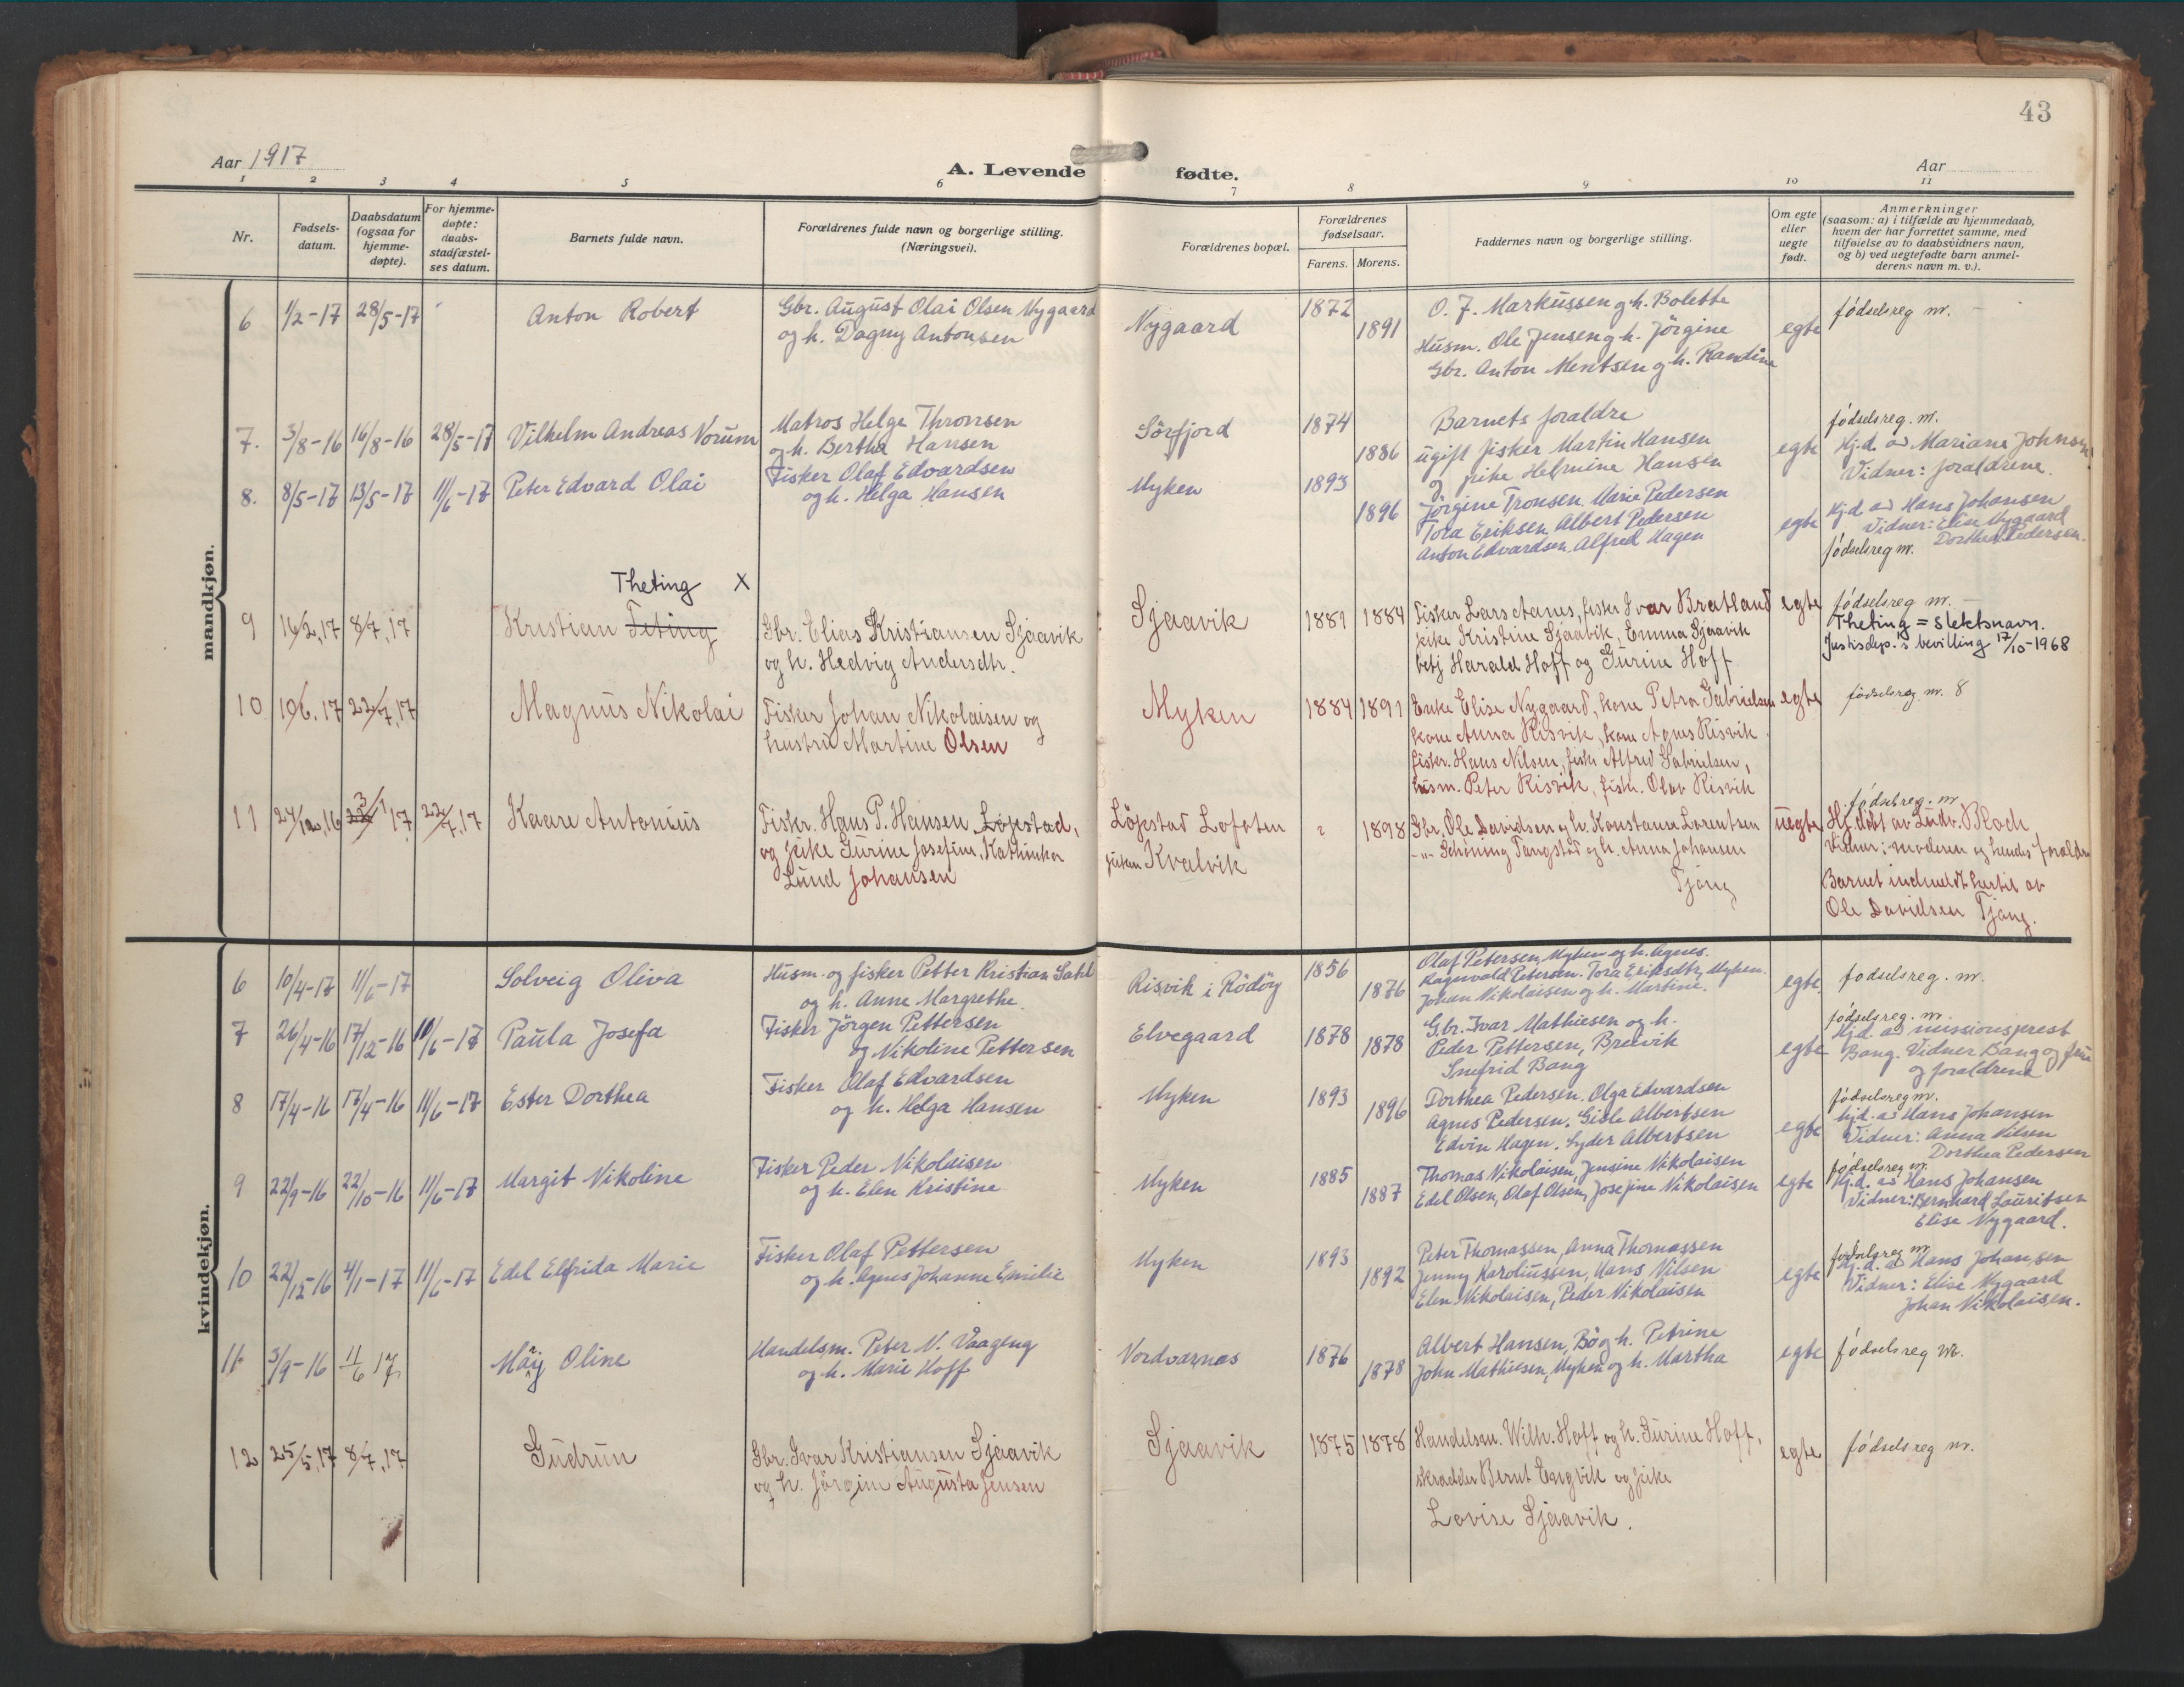 43
Aar 1917
A. Levende fødte.
Aar
1 2 3 4 5 6 7 8 9 10 11
Nr.
Fødsels-
datum.
Daabsdatum
(ogsaa for
hjemme-
døpte).
For hjemme-
døpte:
daabs-
stadfæstel-
ses datum.
Barnets fulde navn.
Forældrenes fulde navn og borgerlige stilling.
(Næringsvei).
Forældrenes bopæl.
Forældrenes
fødselsaar.
Farens. Morens.
Faddernes navn og borgerlige stilling.
Om egte
eller
uegte
født.
Anmerkninger
(saasom: a) i tilfælde av hjemmedaab,
hvem der har forrettet samme, med
tilføielse av to daabsvidners navn,
og b) ved uegtefødte barn anmel-
derens navn m. v.).
mandkjøn.
6 1/2-17 28/5-17 Anton Robert
Gbr. August Olai Olsen Nygaard
og h. Dagny Antonsen
Nygaard 1872 1891
O. J. Markussen og h. Bolette
Husm. Ole Jensen og h. Jörgine
Gbr. Anton Mentsen og h. Randine
egte
fódselsreg m. -
7. 3/8-16 16/8-16 28/5-17 Vilhelm Andreas Vorum
Matros Helge Thronsen
og h. Bertha Hansen
Sörfjord 1874 1886
Barnets foraldre
ugift fisker Martin Hansen
og pike Helmine Hansen
egte
fódselsreg. m.
Hj.d. av Mariane Johnsen
Vidner: foraldrene.
8. 8/5-17 13/5-17 11/6-17 Peter Edvard Olai
Fisker Olaf Edvardsen
og h. Helga Hansen
Myken 1893 1896
Jörgine Tronsen, Marie Pedersen
Tora Eriksen, Albert Pedersen
Anton Edvardsen, Alfred Hagen
egte
Hj.d av Hans Johansen
Vidner: Elise Nygaard
Dorthea Pedersen.
fódselsreg m.
Theting X
9 16/2,17 8/7,17 Kristian Teting
Gbr. Elias Kristiansen Sjaavik
og h. Hedvig Andersdtr.
Sjaavik 1881 1884
Fisker Lars Aanes, fisker Ivar Bratland
pike Kristine Sjaavik, Emma Sjaavik
betj Harald Hoff og Gurine Hoff
egte
fódselsreg m. -
Theting = slektsnavn.
Justisdep.'s bevilling 17/10-1968
10 19/6,17 22/7,17 Magnus Nikolai
Fisker Johan Nikolaisen og
hustru Martine Olsen
Myken 1884 1891
Enke Elise Nygaard, kone Petra Gabrielsen
kone Anna Risvik, kone Agnes Risvik
fisker. Hans Nilsen, fisker Alfred Gabrielsen,
husm. Peter Risvik, fiskr. Olav Risvik
egte
fódselsreg m. 8
11 24/12,16 3/1 17 22/7,17 Kaare Antonius
Fiskr. Hans P. Hansen, Löpstad,
og pike Gurine Josefine Kathinka
Lund Johansen
Löpstad Lofoten
piken Kvalvik
? 1898
Gbr. Ole Davidsen og h. Konstanse Lorentsen
-"- Schöning Tangstad og h. Anna Johansen
Tjong
uegte
fódselsreg. m
Hj.döbt av Ludv. Bloch
Vidner: moderen og hendes foraldre
Barnet indmeldt hertil av
Ole Davidsen Tjong.
kvindekjøn.
6 10/4-17 11/6-17 Solveig Oliva
Husm. og fisker Petter Kristian Sahl
og h. Anne Margrethe
Risvik i Rödöy 1856 1876
Olaf Petersen, Myken og h. Agnes.
Ragnvald Petersen. Tora Eriksdtr, Myken.
Johan Nikolaisen og h. Martine.
egte.
fodselsreg. m.
7 26/4-16 17/12-16 10/6-17 Paula Josefa
Fisker Jörgen Pettersen
og Nikoline Pettersen
Elvegaard 1878 1878
Gbr. Ivar Mathiesen og h.
Peder Pettersen, Breivik
Snefrid Bang
egte
fódselsreg. m.
Hj.d. av missionsprest
Bang. Vidner Bang og frue
og foraldrene
8 17/4-16 17/4-16 11/6-17 Ester Dorthea
Fisker Olaf Edvardsen
og h. Helga Hansen
Myken 1893 1896
Dorthea Pedersen, Olga Edvardsen
Agnes Pedersen, Gisle Albertsen
Edvin Hagen, Syder Albertsen
egte
fódselsreg m.
hj.d. av Hans Johansen
Vidner: Anna Nilsen
Dorthea Pedersen
9 22/9-16 22/10-16 11/6-17 Margit Nikoline
Fisker Peder Nikolaisen
og h. Elen Kristine
Myken 1885 1887
Thomas Nikolaisen, Jensine Nikolaisen
Edel Olsen, Olaf Olsen, Josefine Nikolaisen
egte
fódselsreg m.
Hj.d. av Hans Johansen
Vidner: Bernhard Lauritsen
Elise Nygaard.
10 22/12-16 4/1-17 11/6-17 Edel Elfrida Marie
Fisker Olaf Pettersen
og h. Agnes Johanne Emilie
Myken 1893 1892
Peter Thomassen, Anna Thomassen
Jenny Karoliussen, Hans Nilsen
Elen Nikolaisen, Peder Nikolaisen
egte
fódselsreg m
Hj.d. av Hans Johansen
Vidner: Elise Nygaard
Johan Nikolaisen.
11 3/9-16 11/6 17 Maij Oline
Handelsm. Peter N. Vaageng
og h. Marie Hoff
Nordvarnes 1876 1878
Albert Hansen, Bö og h. Petrine
John Mathiesen, Myken og h. Martha
egte
fódselsreg m.
12 25/5,17 8/7,17 Gudrun
Gbr. Ivar Kristiansen Sjaavik
og h. Jörgine Augusta Jensen
Sjaavik 1875 1878
Handelsm. Wilh. Hoff og h. Gurine Hoff,
skradder Bernt Engvik og pike
Lovise Sjaavik.
egte
fódselsreg m.